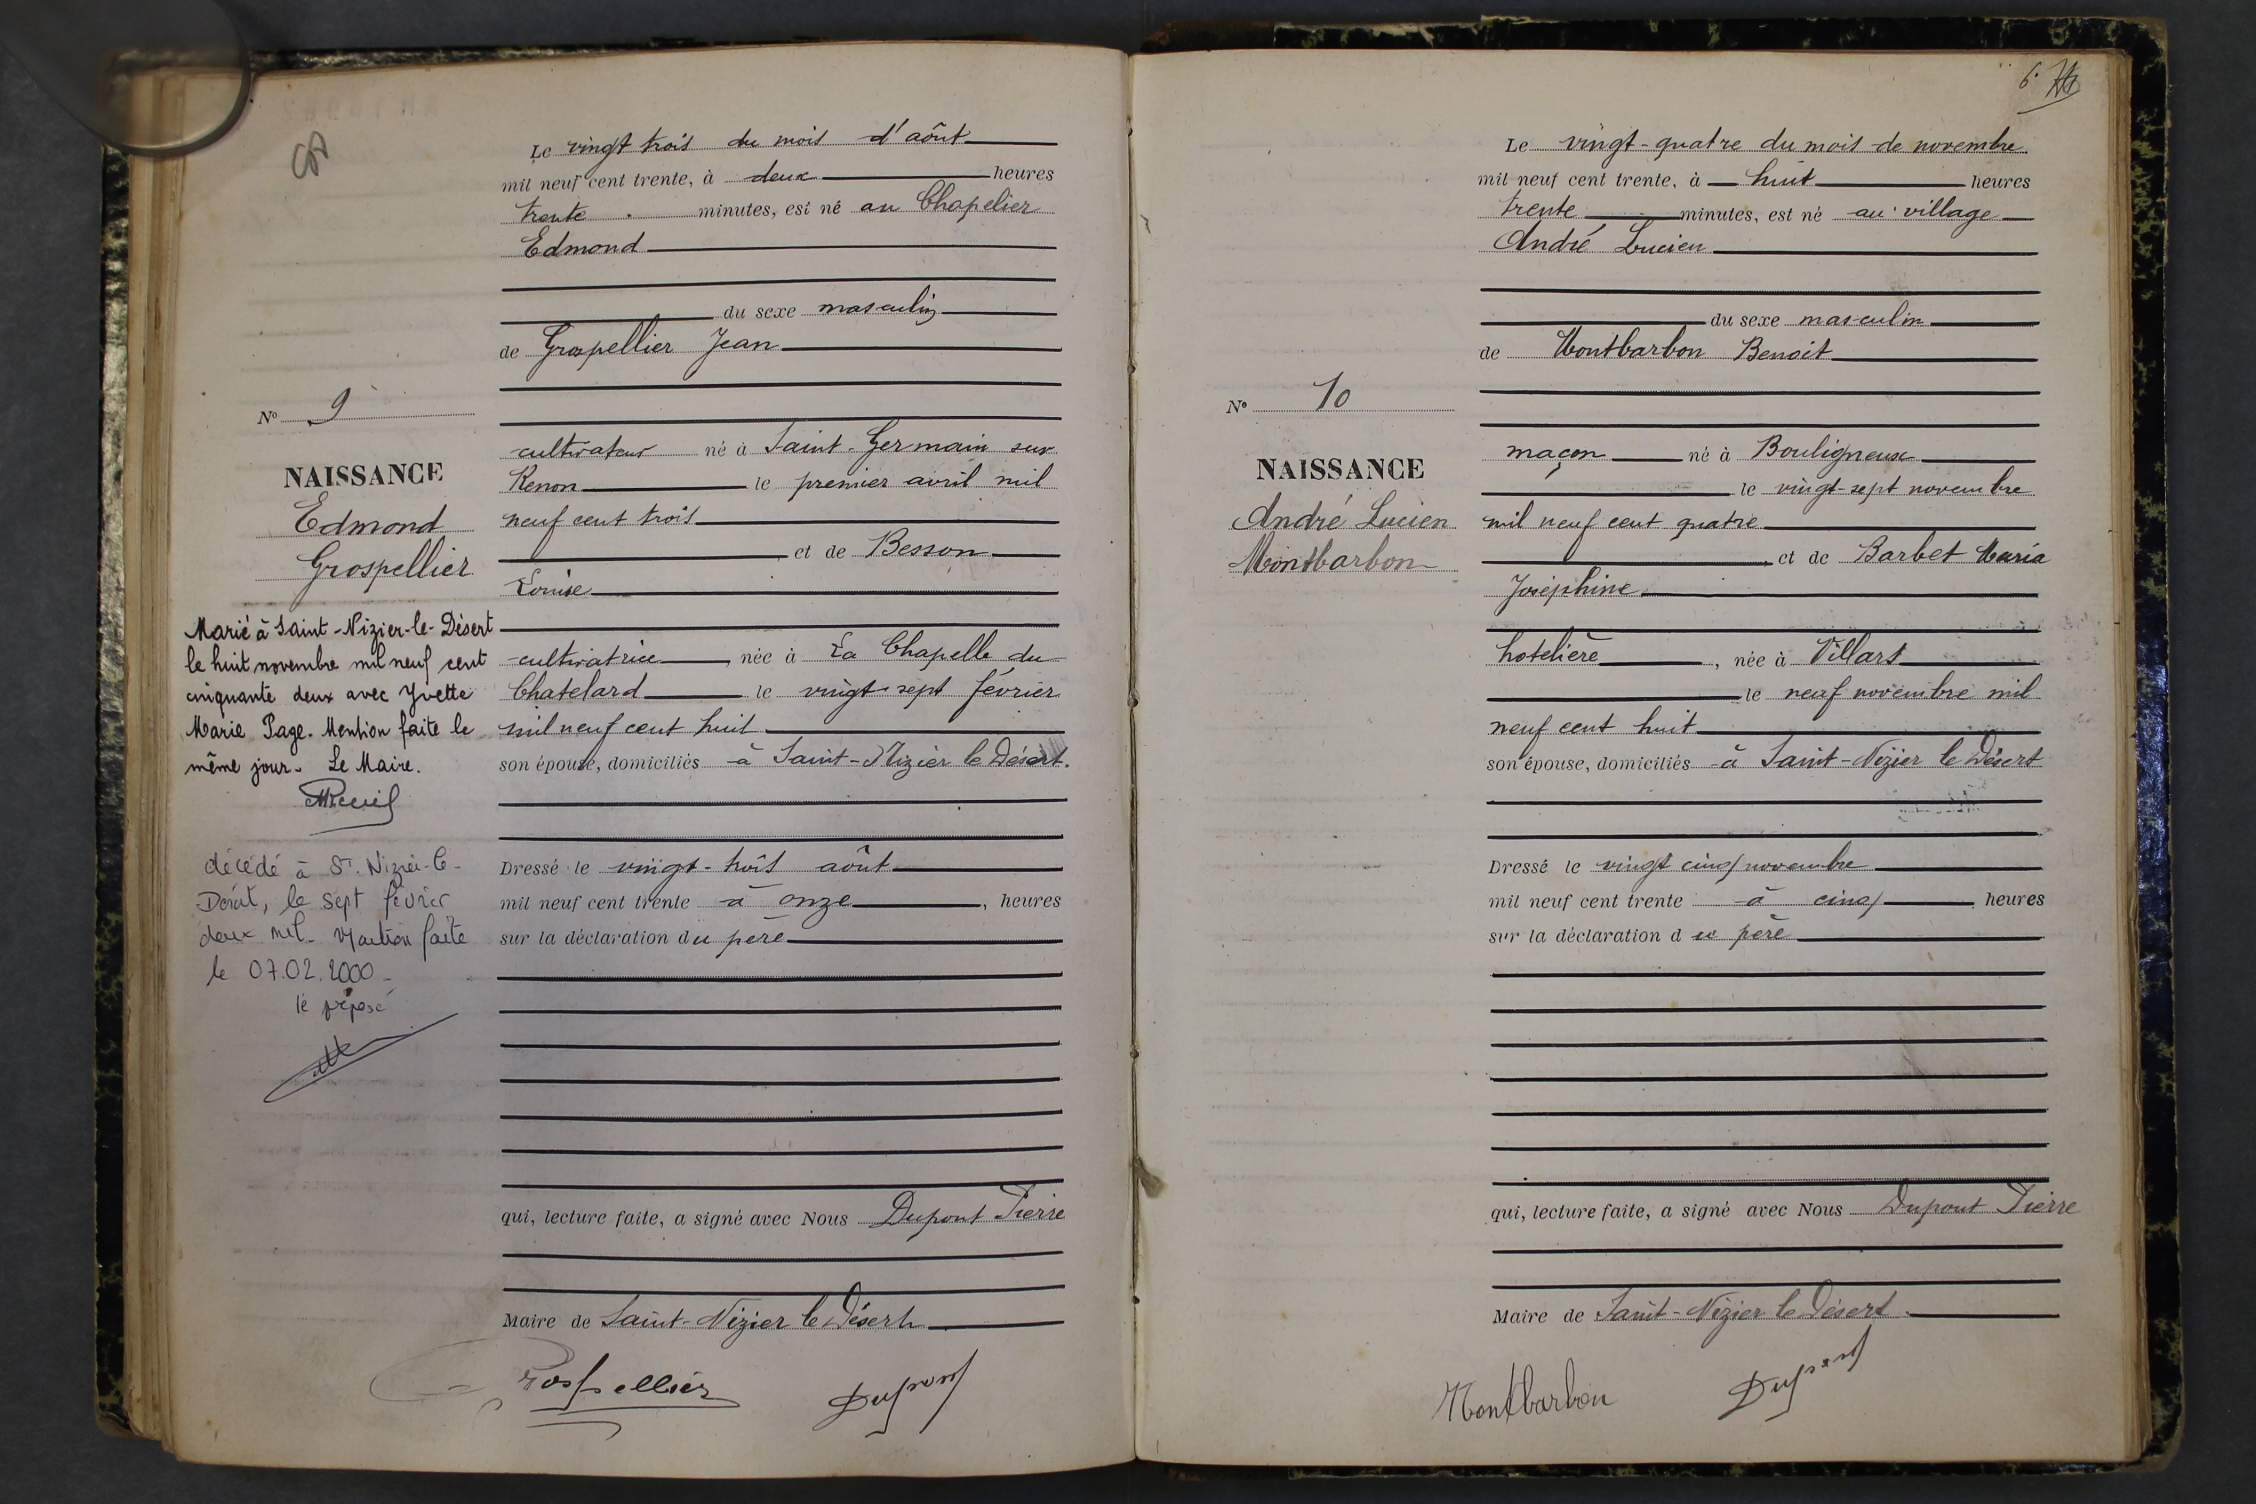 Le vingt trois du mois d'août
mil neuf cent trente, à deux heures
trente minutes, est né au Chapelier
Edmond
du sexe masculin
de Grospellier Jean
N° 9
cultivateur né à Saint-Germain sur
Renon le premier avril mil
NAISSANCE
Edmond
Grospellier
neuf cent trois
et de Besson
Louise
cultivatrice, née à La Chapelle du
Chatelard le vingt-sept février
mil neuf cent huit
son épouse, domiciliés à Saint-Nizier le Désert.
Marié à Saint-Nizier-le-Désert
le huit novembre mil neuf cent
cinquante deux avec Yvette
Marie Page. Mention faite le
même jour. Le Maire.
décédé à St. Nizier-le-
Désert, le sept février
deux mil. Mention faite
le 07.02.2000-
le préposé
Dressé le vingt-trois août
mil neuf cent trente à onze, heures
sur la déclaration du père
qui, lecture faite, a signé avec Nous Dupont Pierre
Maire de Saint-Nizier le Désert
Grospellier Dupont
6.
Le vingt-quatre du mois de novembre
mil neuf cent trente, à huit heures
trente minutes, est né au village
André Lucien
du sexe masculin
de Montbarbon Benoit
N° 10
maçon né à Bouligneux
le vingt-sept novembre
NAISSANCE
André Lucien
Montbarbon
mil neuf cent quatre
et de Barbet Maria
Joséphine
hotelière, née à Villars
le neuf novembre mil
neuf cent huit
son épouse, domiciliés à Saint-Nizier le Désert
Dressé le vingt cinq novembre
mil neuf cent trente à cinq heures
sur la déclaration du père
qui, lecture faite, a signé avec Nous Dupont Pierre
Maire de Saint-Nizier le Désert.
Montbarbon Dupont